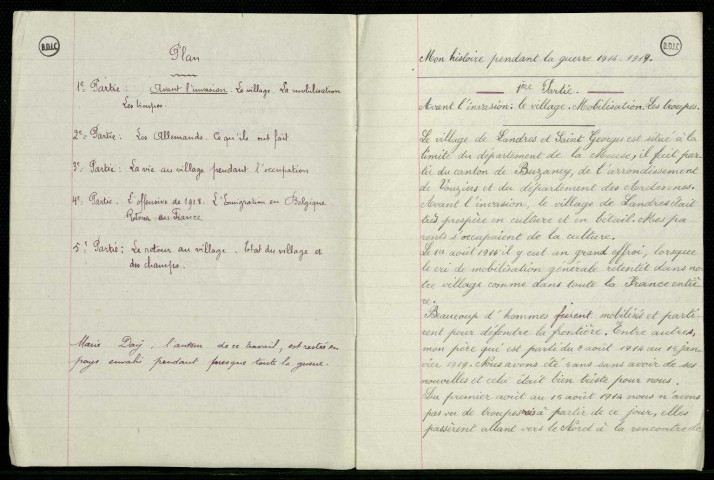 B.D.I.C
Plan
1e Partie : Avant l'invasion. Le village. La mobilisation
Les troupes.
2e Partie : Les Allemands. Ce qu'ils ont fait
3e Partie : La vie au village pendant l'occupation
4e Partie. L'offensive de 1918. L'Emigration en Belgique
Retour en France
5e Partie : Le retour au village. Etat du village et
des champs.
Marie Day, l'auteur de ce travail, est restée en
pays envahi pendant presque toute la guerre.
B.D.I.C
Mon histoire pendant la guerre 1914-1919.
1ère Partie.
Avant l'invasion : le village. Mobilisation. Les troupes.
Le village de Landres et Saint Georges est situé à la
limite du département de la Meuse, il fait par
tie du canton de Buzancy, de l'arrondissement
de Vouziers et du département des Ardennes.
Avant l'invasion, le village de Landres était
très prospère en culture et en bétail. Mes pa
rents s'occupaient de la culture.
Le 1er août 1914 il y eut un grand effroi, lorsque
le cri de mobilisation générale retentit dans no
tre village comme dans toute la France entiè
re.
Beaucoup d'hommes furent mobilisés et parti
rent pour défendre la frontière. Entre autres,
mon père qui est parti du 2 août 1914 au 15 jan
vier 1919. Nous avons été 5 ans sans avoir de ses
nouvelles et cela était bien triste pour nous.
Du premier août au 15 août 1914 nous n'avons
pas vu de troupes à partir de ce jour, elles
passèrent allant vers le Nord à la rencontre de